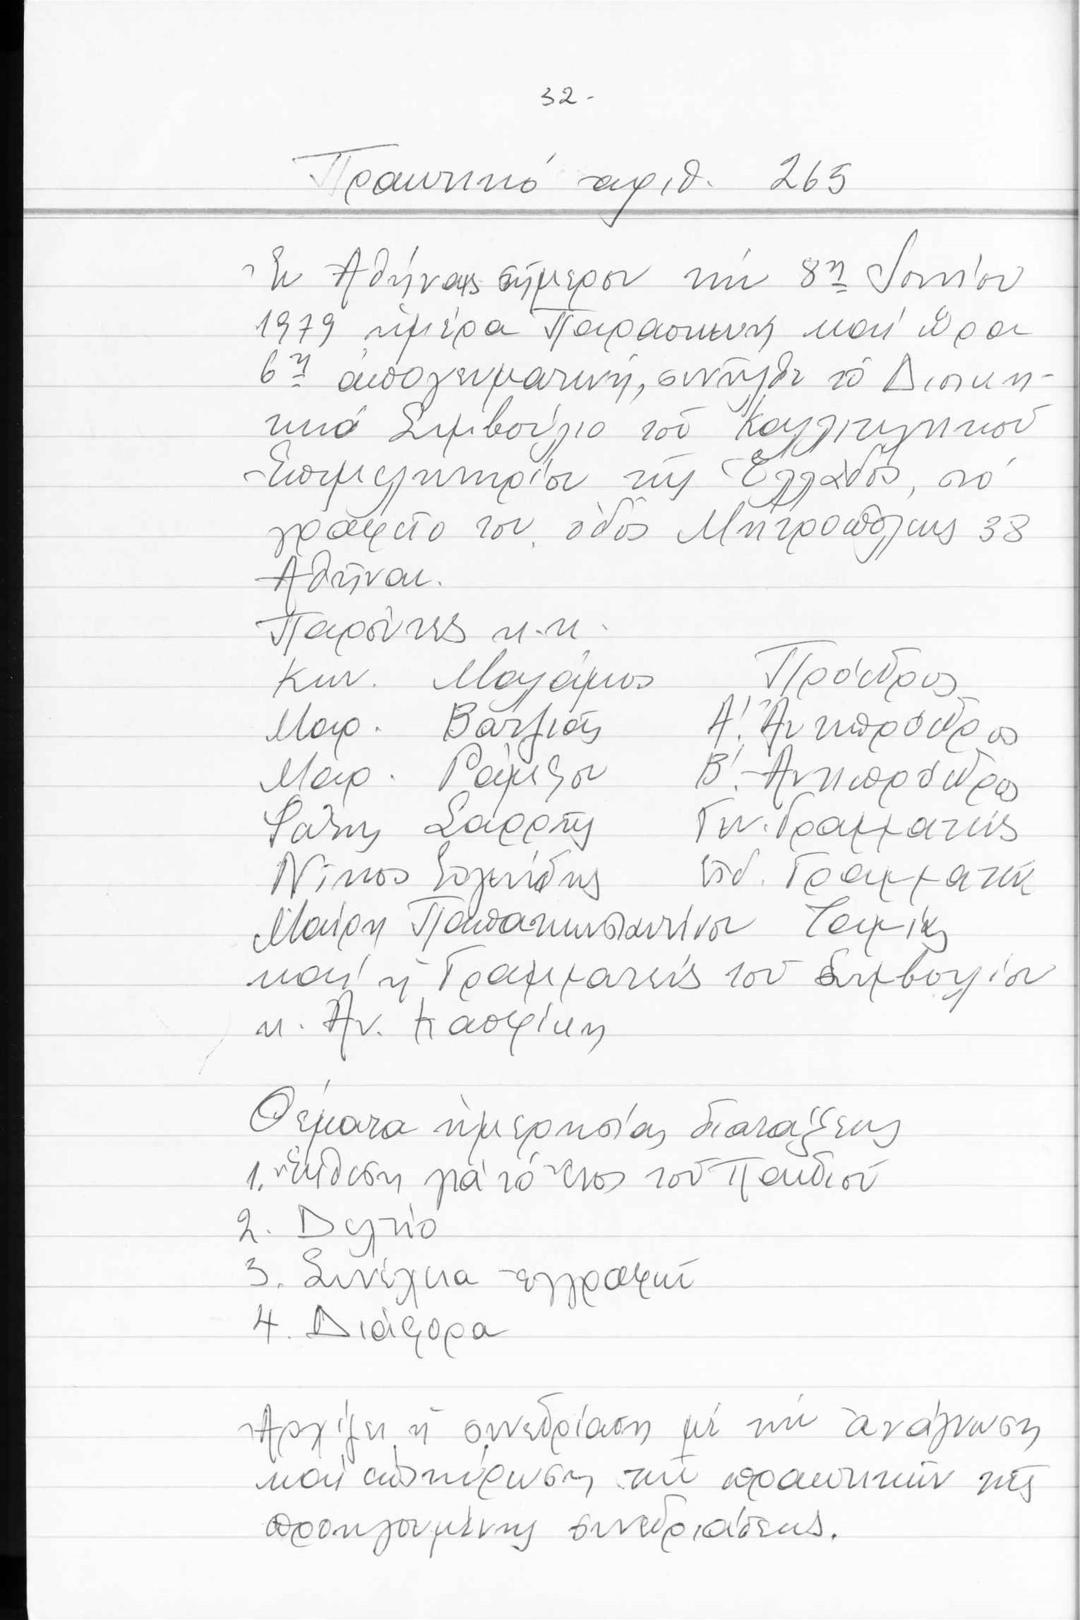 32 -
Πρακτικό αριθ. 265
Ἐν Ἀθήναις σήμερον τήν 8η Ἰουνίου
1979 ἡμέρα Παρασκευή καί ὥρα
6η ἀπογευματινή, συνῆλθε τό Διοικη-
τικό Συμβούλιο τοῦ Καλλιτεχνικοῦ
Ἐπιμελητηρίου τῆς Ἑλλάδος, στό
γραφεῖο του, ὁδός Μητροπόλεως 38
Ἀθῆναι.
Παρόντες κ.κ.
Κων. Μαλάμος Πρόεδρος
Μαρ. Βατζιᾶς Α! Ἀντιπρόεδρος
Μαρ. Β! Ἀντιπρόεδρος
Φώτης Σαρρῆς Γεν. Γραμματεύς
Νῖκος Εἰδ. Γραμματεύς
Μαίρη Παπακωνσταντίνου Ταμίας
καί ἡ Γραμματεύς τοῦ Συμβουλίου
κ. Ἀν.
Θέματα ἡμερησίας διατάξεως
1. Ἔκθεση γιά τό Ἔτος τοῦ Παιδιοῦ
2. Δελτίο
3. Συνέχεια ἐγγραφῶν
4. Διάφορα
Ἀρχίζει ἡ συνεδρίαση μέ τήν ἀνάγνωση
καί ἐπικύρωση τῶν πρακτικῶν τῆς
προηγουμένης συνεδριάσεως.